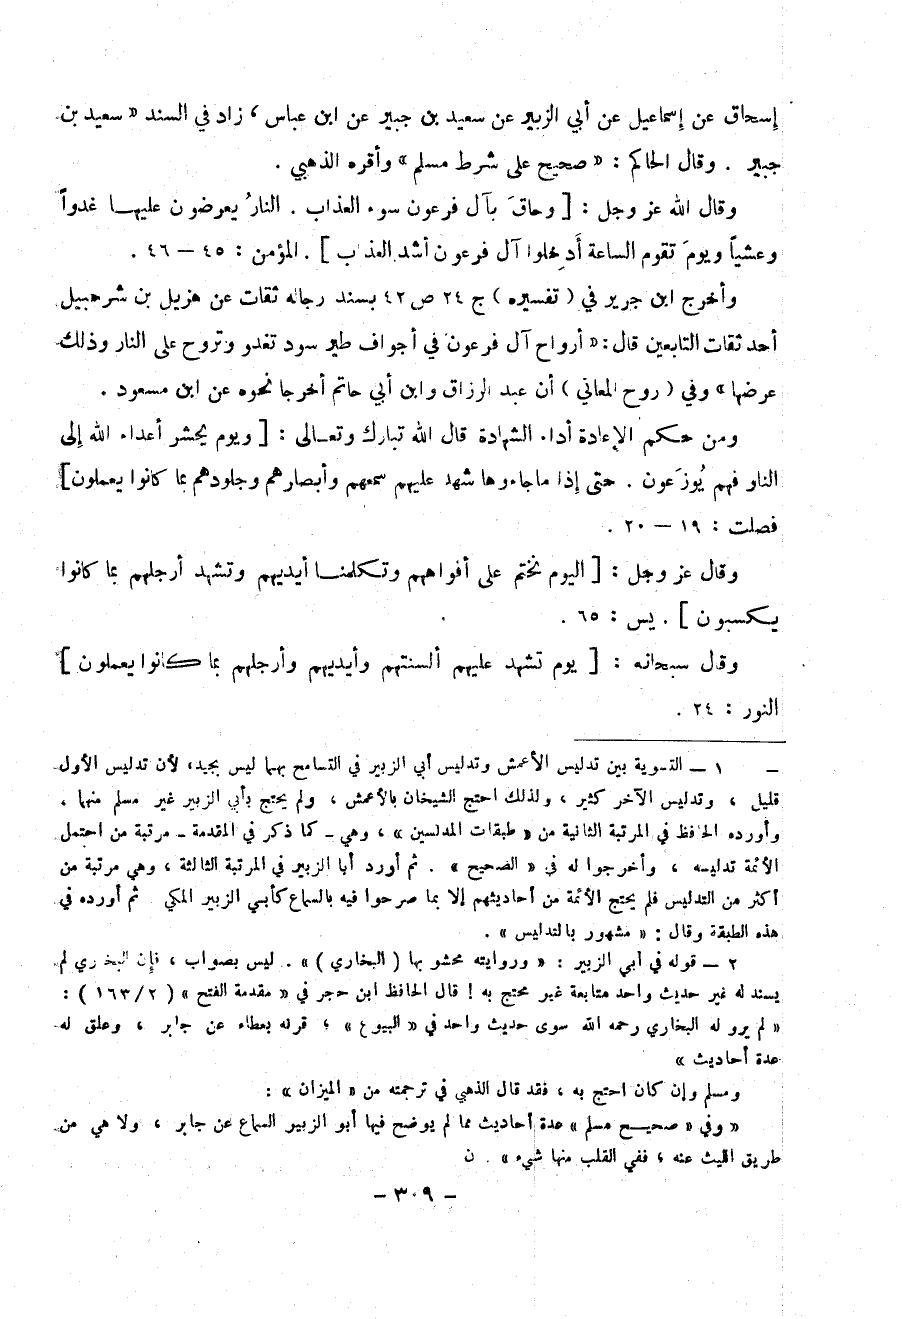 إسحاق عن إسماعيل عن أبي الزبير عن سعيد بن جبير عن ابن عباس ، زاد في السند « سعيد بن
جبير . وقال الحاكم : « صحيح على شرط مسلم » وأقره الذهبي .
وقال الله عز وجل : [ وحاقَ بآل فرعون سوء العذاب . النارُ يعرضون عليهـا غدواً
وعشياً ويومَ تقوم الساعة أَدخلوا آل فرعون أشد العذاب ] . المؤمن : ٤٥ – ٤٦ .
وأخرج ابن جرير في ( تفسيره ) ج ٢٤ ص ٤٢ بسند رجاله ثقات عن هزيل بن شرحبيل
أحد ثقات التابعين قال : « أرواح آل فرعون في أجواف طير سود تغدو وتروح على النار وذلك
عرضها » وفي ( روح المعاني ) أن عبد الرزاق وابن أبي حاتم أخرجا نحوه عن ابن مسعود .
ومن حـكم الإعادة أداء الشهادة قال الله تبارك وتعـالى : [ ويوم يحشر أعداء الله إلى
النار فهم يُوزَعون . حتى إذا ماجاءوها شهد عليهم سمعهم وأبصارهم وجلودهم بما كانوا يعملون ]
فصلت : ١٩ – ٢٠ .
وقال عز وجل : [ اليوم نختم على أفواههم وتـكلمنـا أيديهم وتشهد أرجلهم بما كانوا
يـكسبون ] . يس : ٦٥ .
وقال سبحانه : [ يوم تشهد عليهم ألسنتهم وأيديهم وأرجلهم بما كانوا يعملون ]
النور : ٢٤ .
– ١ – التسوية بين تدليس الأعمش وتدليس أبي الزبير في التسامح بهما ليس بجيد، لأن تدليس الأول
قليل ، وتدليس الآخر كثير ، ولذلك احتج الشيخان بالأعمش ، ولم يحتج بأبي الزبير غير مسلم منهما .
وأورده الحافظ في المرتبة الثانية من « طبقات المدلسين » ، وهي – كما ذكر في المقدمة – مرتبة من احتمل
الأئمة تدليسه ، وأخرجوا له في « الصحيح » . ثم أورد أبا الزبير في المرتبة الثالثة ، وهي مرتبة من
أكثر من التدليس فلم يحتج الأئمة من أحاديثهم إلا بما صرحوا فيه بالسماع كأبي الزبير المكي ثم أورده في
هذه الطبقة وقال : « مشهور بالتدليس » .
٢ – قوله في أبي الزبير : « وروايته محشو بها ( البخاري ) » . ليس بصواب ، فإن البخاري لم
يسند له غير حديث واحد متابعة غير محتج به ! قال الحافظ ابن حجر في « مقدمة الفتح » ( ٢/ ١٦٣ ) :
« لم يرو له البخاري رحمه الله سوى حديث واحد في « البيوع » ؛ قرنه بعطاء عن جابر ، وعلق له
عدة أحاديث »
ومسلم وإن كان احتج به ، فقد قال الذهبي في ترجمته من « الميزان » :
« وفي « صحيـح مسلم » عدة أحاديث مما لم يوضح فيها أبو الزبير السماع عن جابر ، ولا هي من
طريق الليث عنه ، ففي القلب منها شيء » . ن
– ٣٠٩ –